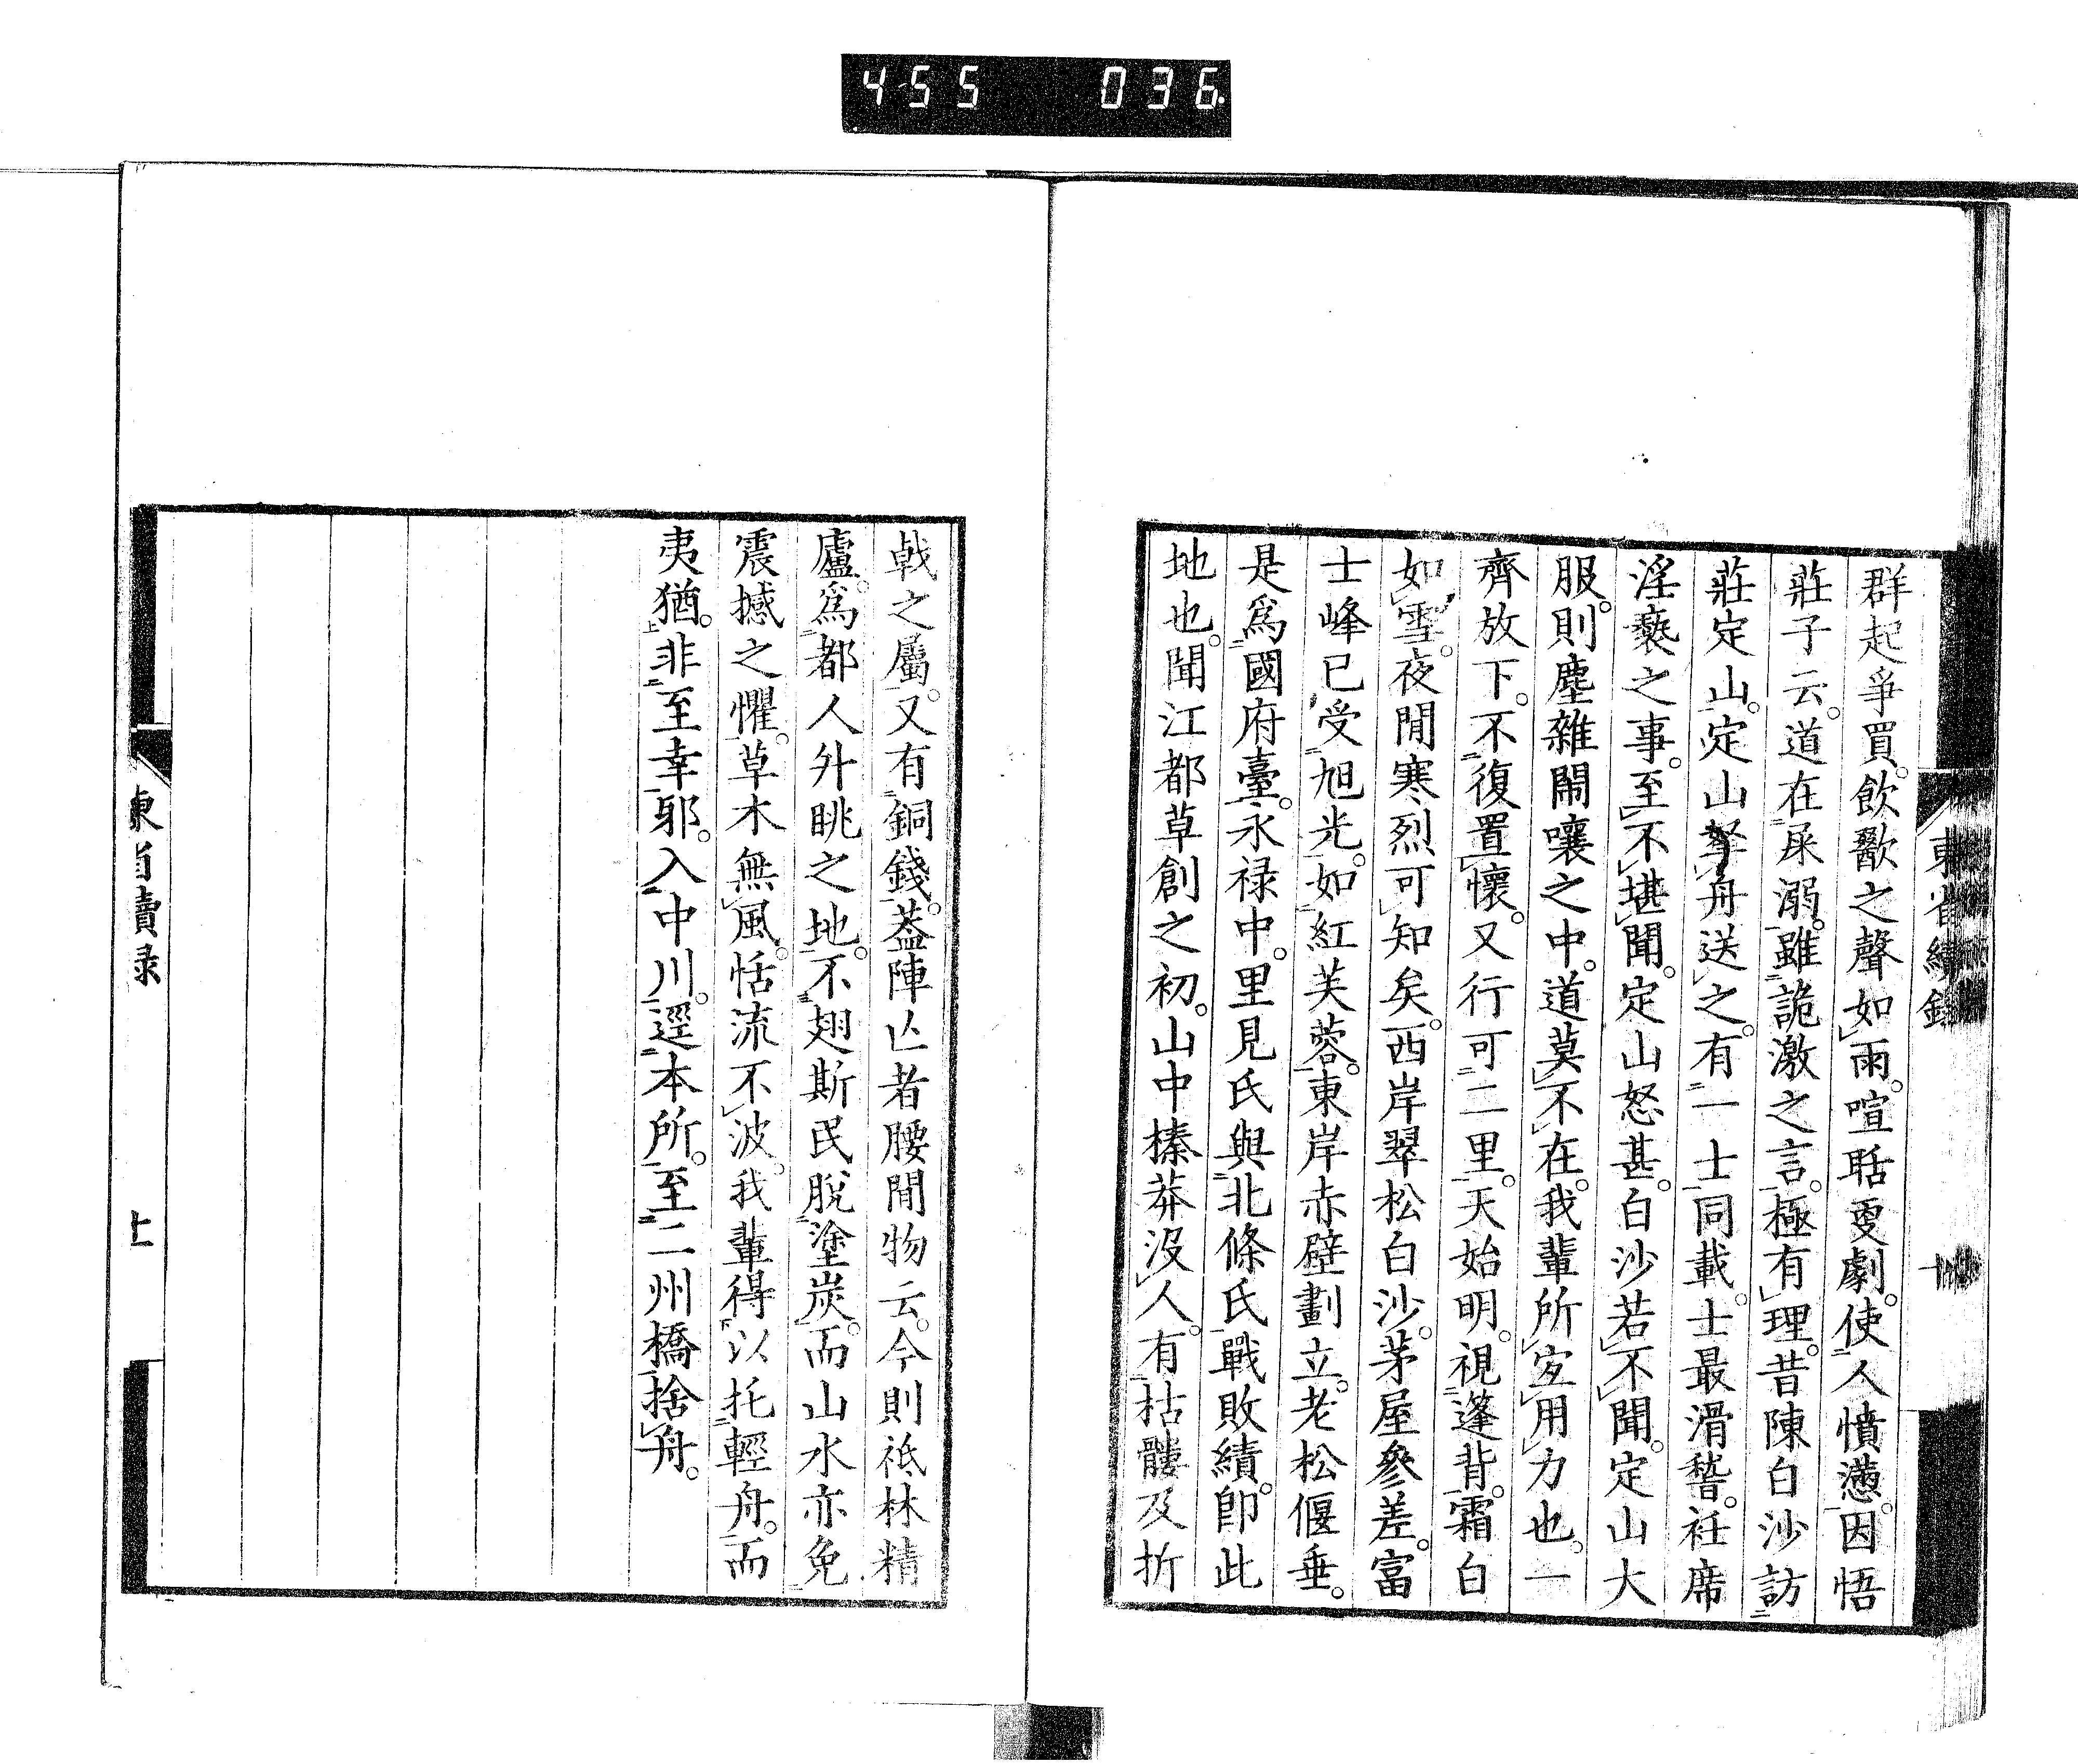 455 036
東省續錄
群起爭買。飲歠之聲如雨。喧聒更劇。使人憤懣。因悟
莊子云。道在屎溺。雖詭激之言。極有理。昔陳白沙訪
莊定山。定山拏舟送之。有一士同載。士最滑稽。衽席
淫褻之事。至不堪聞。定山怒甚。白沙若不聞。定山大
服。則塵雜鬧嚷之中。道莫不在。我輩所宜用力也。一
齊放下。不復置懷。又行可二里。天始明。視篷背。霜白
如雪。夜間寒烈可知矣。西岸翠松白沙。茅屋參差。富
士峰已受旭光。如紅芙蓉。東岸赤壁劃立。老松偃垂。
是爲國府臺。永禄中。里見氏與北條氏戰敗績。卽此
地也。聞江都草創之初。山中榛莽沒人。有枯髏及折
戟之屬。又有銅錢。葢陣亾者腰間物云。今則祗林精
廬。爲都人外眺之地。不翅斯民脫塗炭。而山水亦免
震撼之懼。草木無風。恬流不波。我輩得以托輕舟。而
夷猶。非至幸邪。入中川。逕本所。至二州橋捨舟。
東省續録